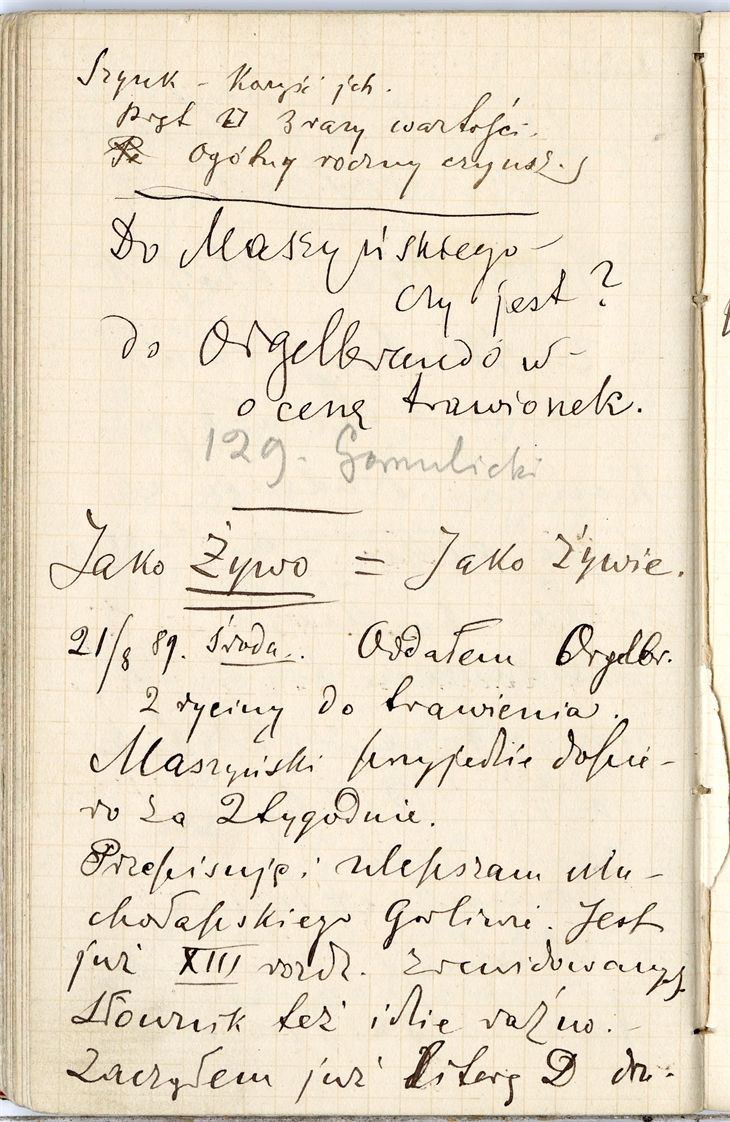 Szynk – Korzyść ich.
Prąt 27 3 razy wartości.
Ogólny roczny czynsz.
Do Maszyńskiego –
czy jest?
do Orgelbrandów –
o cenę trawionek.
129. Gomulicki
Jako Żywo = Jako Żywie.
21/8 89. Środa. Oddałem Orgelbr.
2 ryciny do trawienia.
Maszyński przyjedzie dopie-
ro za 2 tygodnie.
Przepisuję i ulepszam Mu-
chołapskiego Gorliwie. Jest
już XIII rozdz. zrewidowanych.
Słownik też idzie raźno. –
Zacząłem już literę D dru-